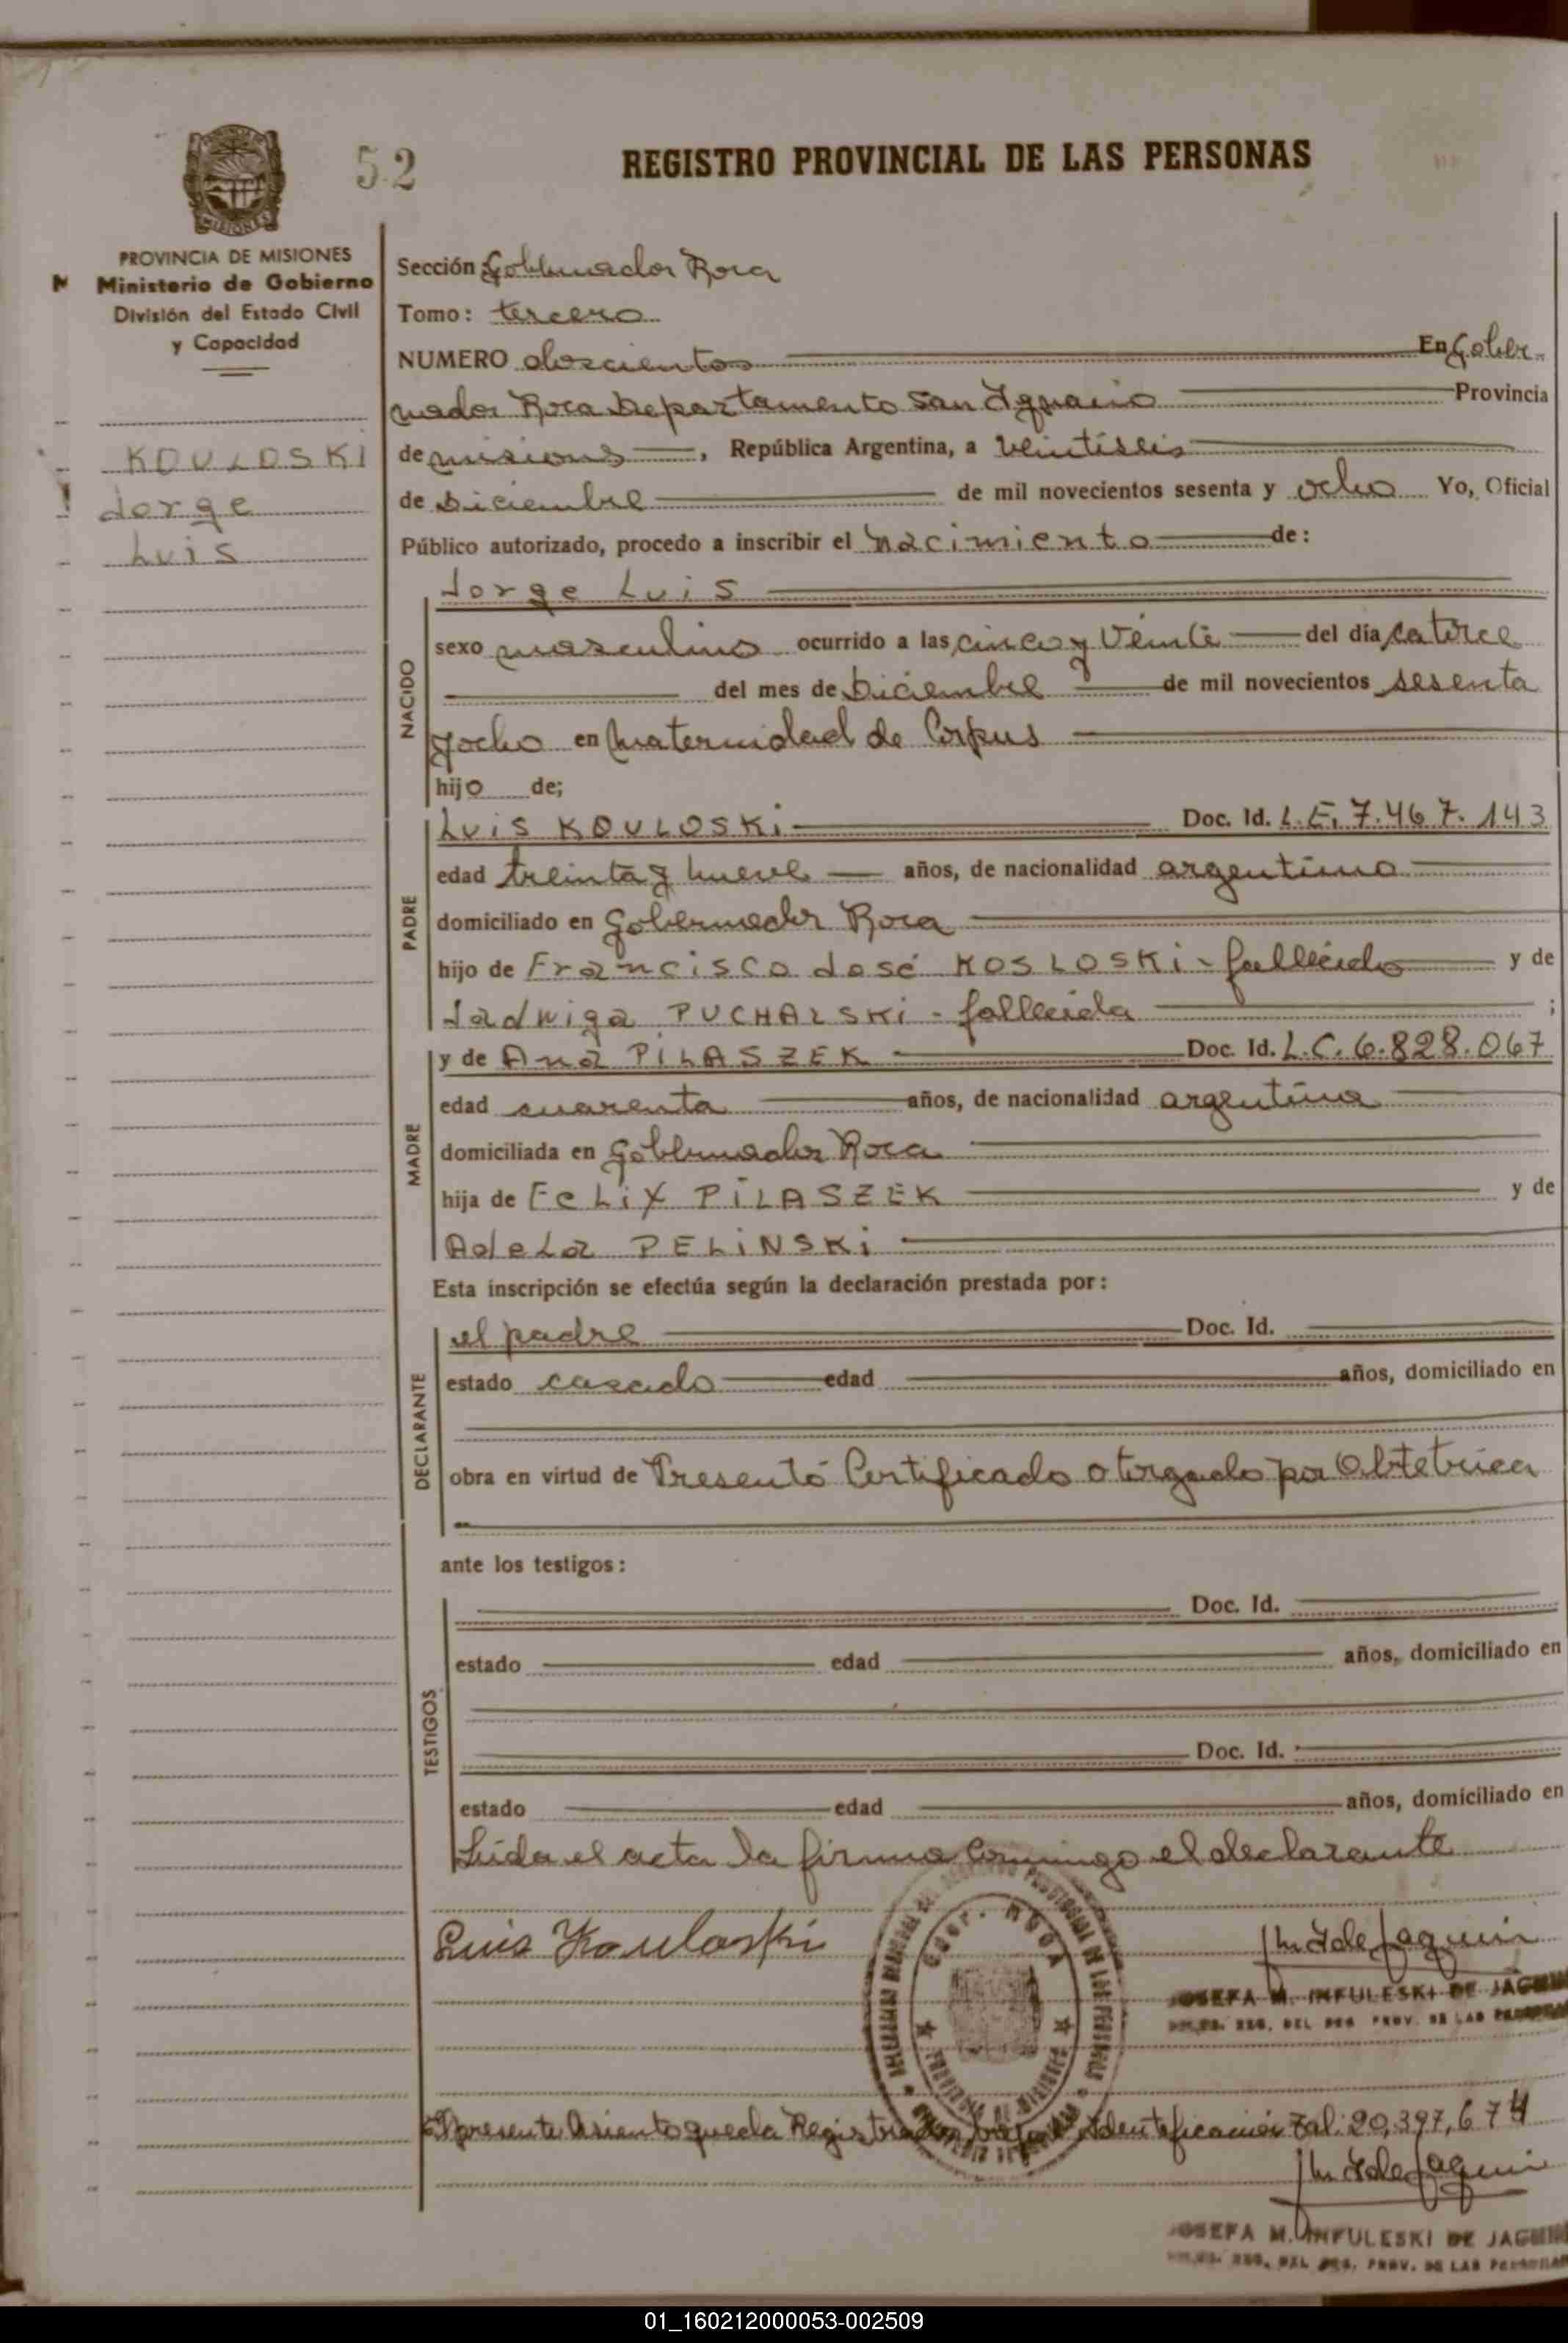 52
REGISTRO PROVINCIAL DE LAS PERSONAS
PROVINCIA DE MISIONES
Ministerio de Gobierno
División del Estado Civil
y Capacidad
KOULOSKI
Jorge
Luis
Sección Gobernador Roca
Tomo: tercero
NUMERO doscientos En Gober
nador Roca Departamento San Ignacio Provincia
de misiones, República Argentina, a veintiseis
de Diciembre de mil novecientos sesenta y ocho Yo, Oficial
Público autorizado, procedo a inscribir el nacimiento de:
NACIDO
Jorge Luis
sexo masculino ocurrido a las cinco y veinte del día catorce
del mes de Diciembre de mil novecientos sesenta
y ocho en Maternidad de Corpus
hijo de;
PADRE
Luis KOULOSKi Doc. Id. L.E. 7.467.143
edad treinta y nueve años, de nacionalidad argentino
domiciliado en Gobernador Roca
hijo de Francisco José KOSLOSKi - fallecido y de
Jadwiga PUCHALSKi - fallecida ;
MADRE
y de Ana PiLASZEK Doc. Id. L.C. 6.828.067
edad cuarenta años, de nacionalidad argentina
domiciliada en Gobernador Roca
hija de FeLiX PiLASZEK y de
AdeLa PELiNSKi
Esta inscripción se efectúa según la declaración prestada por:
DECLARANTE
el padre Doc. Id.
estado casado edad años, domiciliado en
obra en virtud de Presentó Certificado otorgado por Obtetrica
ante los testigos:
TESTIGOS
Doc. Id.
estado edad años, domiciliado en
Doc. Id.
estado edad años, domiciliado en
Leida el acta la firma conmigo el declarante
Luis Kouloski
GOBR. ROCA
JOSEFA M. INFULESKI DE JAGUIN
El presente Asiento queda Registrado bajo Identificación Zal: 20,397,674
JOSEFA M. INFULESKI DE JAGUIN
01_160212000053-002509